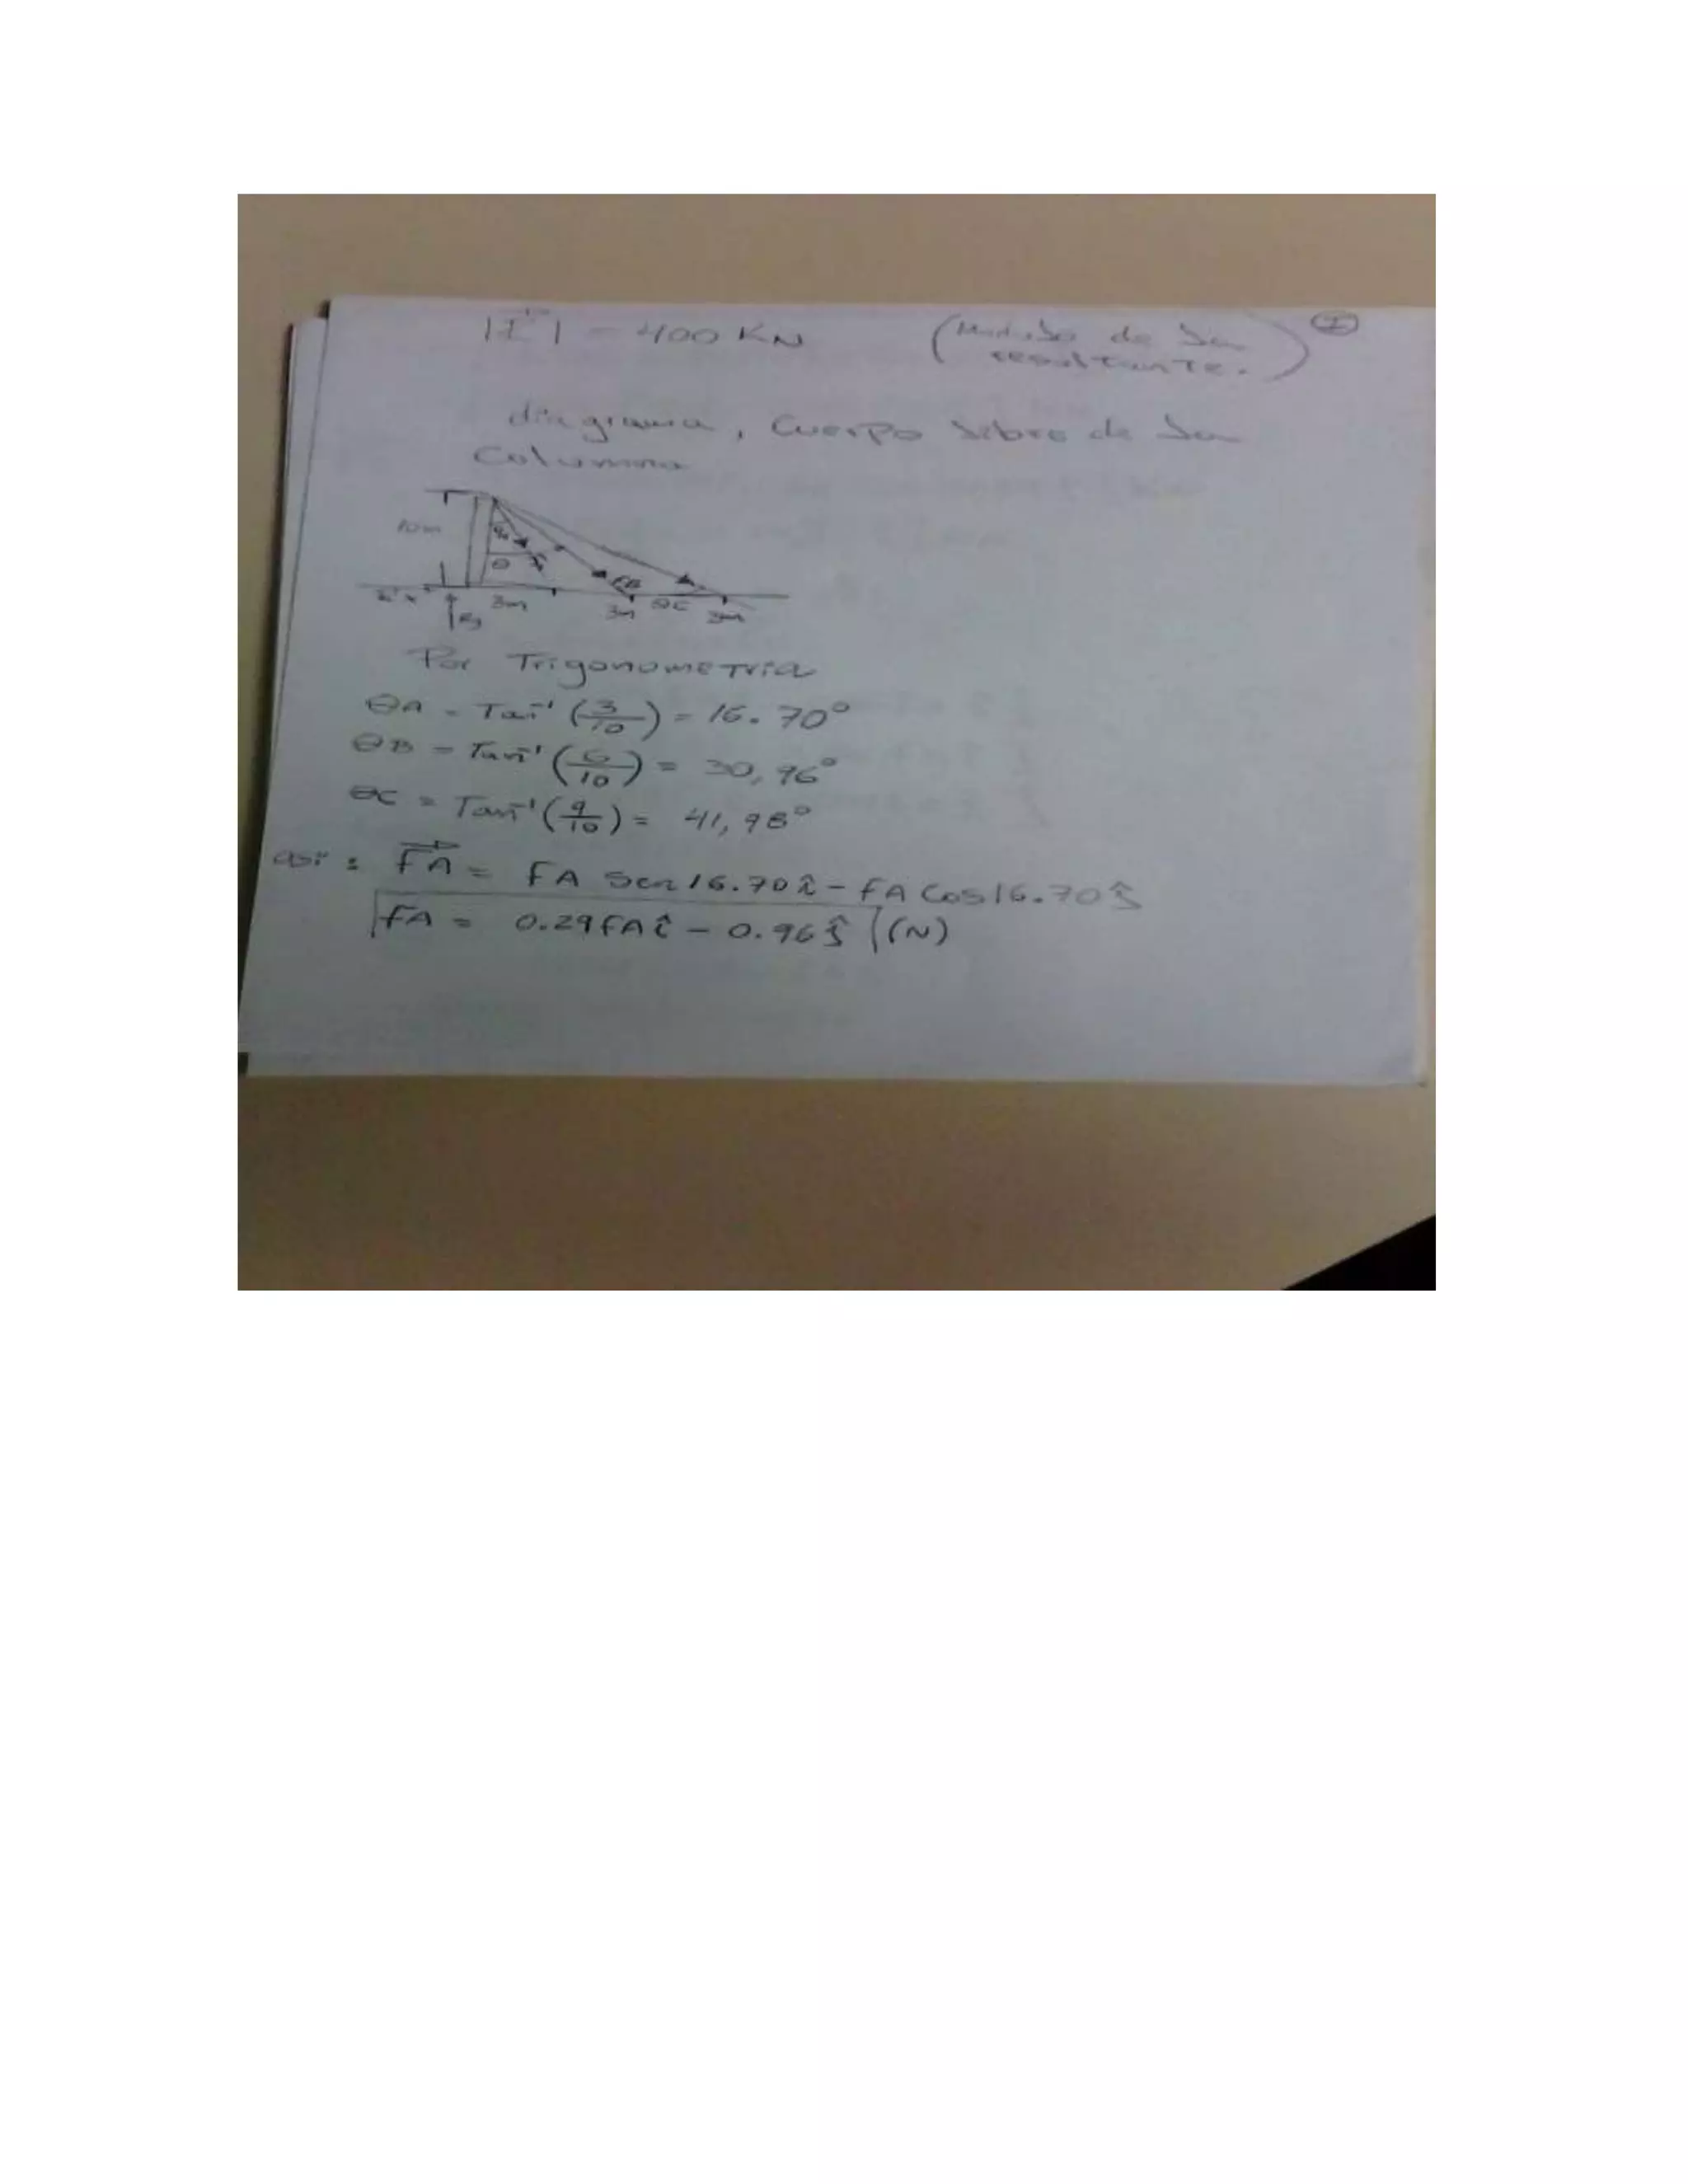 |F| = 400 KN (Modulo de la resultante.) 1
diagrama, Cuerpo libre de la
Columna
10m
θ
FB
3m 3m θC 3m
Por Trigonometria
θA = Tan⁻¹ (3/10) = 16.70°
θB = Tan⁻¹ (6/10) = 30,96°
θC = Tan⁻¹ (9/10) = 41,98°
asi: FA = FA Sen 16.70 î - FA Cos 16.70 ĵ
FA = 0.29 FA î - 0.96 ĵ (N)